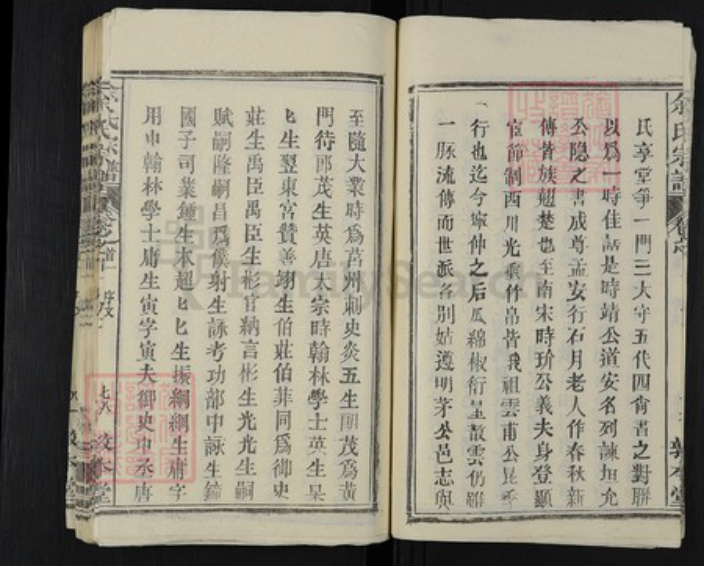 余氏宗譜
氏享堂爭一門三大守五代四尙書之對聯
以爲一時佳話是時靖公道安名列諫垣允
公隱之書成尊孟安行石月老人作春秋新
傳皆族翹楚也至南宋時玠公義夫身登顯
宦節制西川光爭竹帛皆我祖雲甫公昆季
行也迄今寧仲之后瓜綿椒衍星散雲仍雖
一脉流傳而世派各別姑遵明茅公邑志與
至隨大業時爲莒州刺史炎五生朗茂爲黃
門待郎茂生英唐太宗時翰林學士英生杲
匕生翌東宮贊善翊生伯莊伯菲同爲御史
莊生禹臣禹臣生彬官納言彬生光光生嗣
賦嗣隆嗣昌爲僕射生詠考功部中詠生鐘
國子司業鍾生本超匕匕生振綱綱生庸字
用中翰林學士庸生寅字寅夫御史中丞唐
余氏宗譜
首一
序文
敦本堂